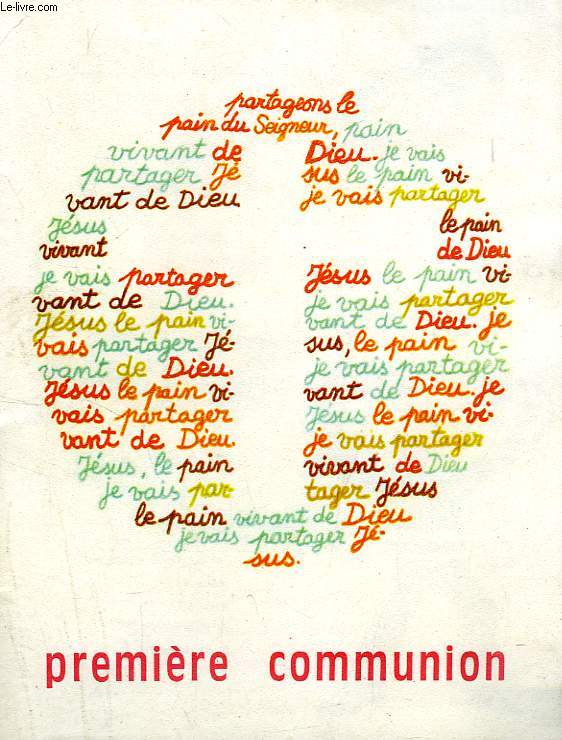 Le-livre.com
partageons le
pain du Seigneur, pain
vivant de Dieu. je vais
partager Jé sus le pain vi-
vant de Dieu je vais partager
Jésus le pain
vivant de Dieu
je vais partager Jésus le pain vi-
vant de Dieu. je vais partager
Jésus le pain vi- vant de Dieu. je
vais partager Jé- sus, le pain vi-
vant de Dieu. je vais partager
Jésus le pain vi- vant de Dieu. je
vais partager Jésus le pain vi-
vant de Dieu. je vais partager
Jésus, le pain vivant de Dieu
je vais par- tager Jésus
le pain vivant de Dieu
je vais partager Jé-
sus.
première communion